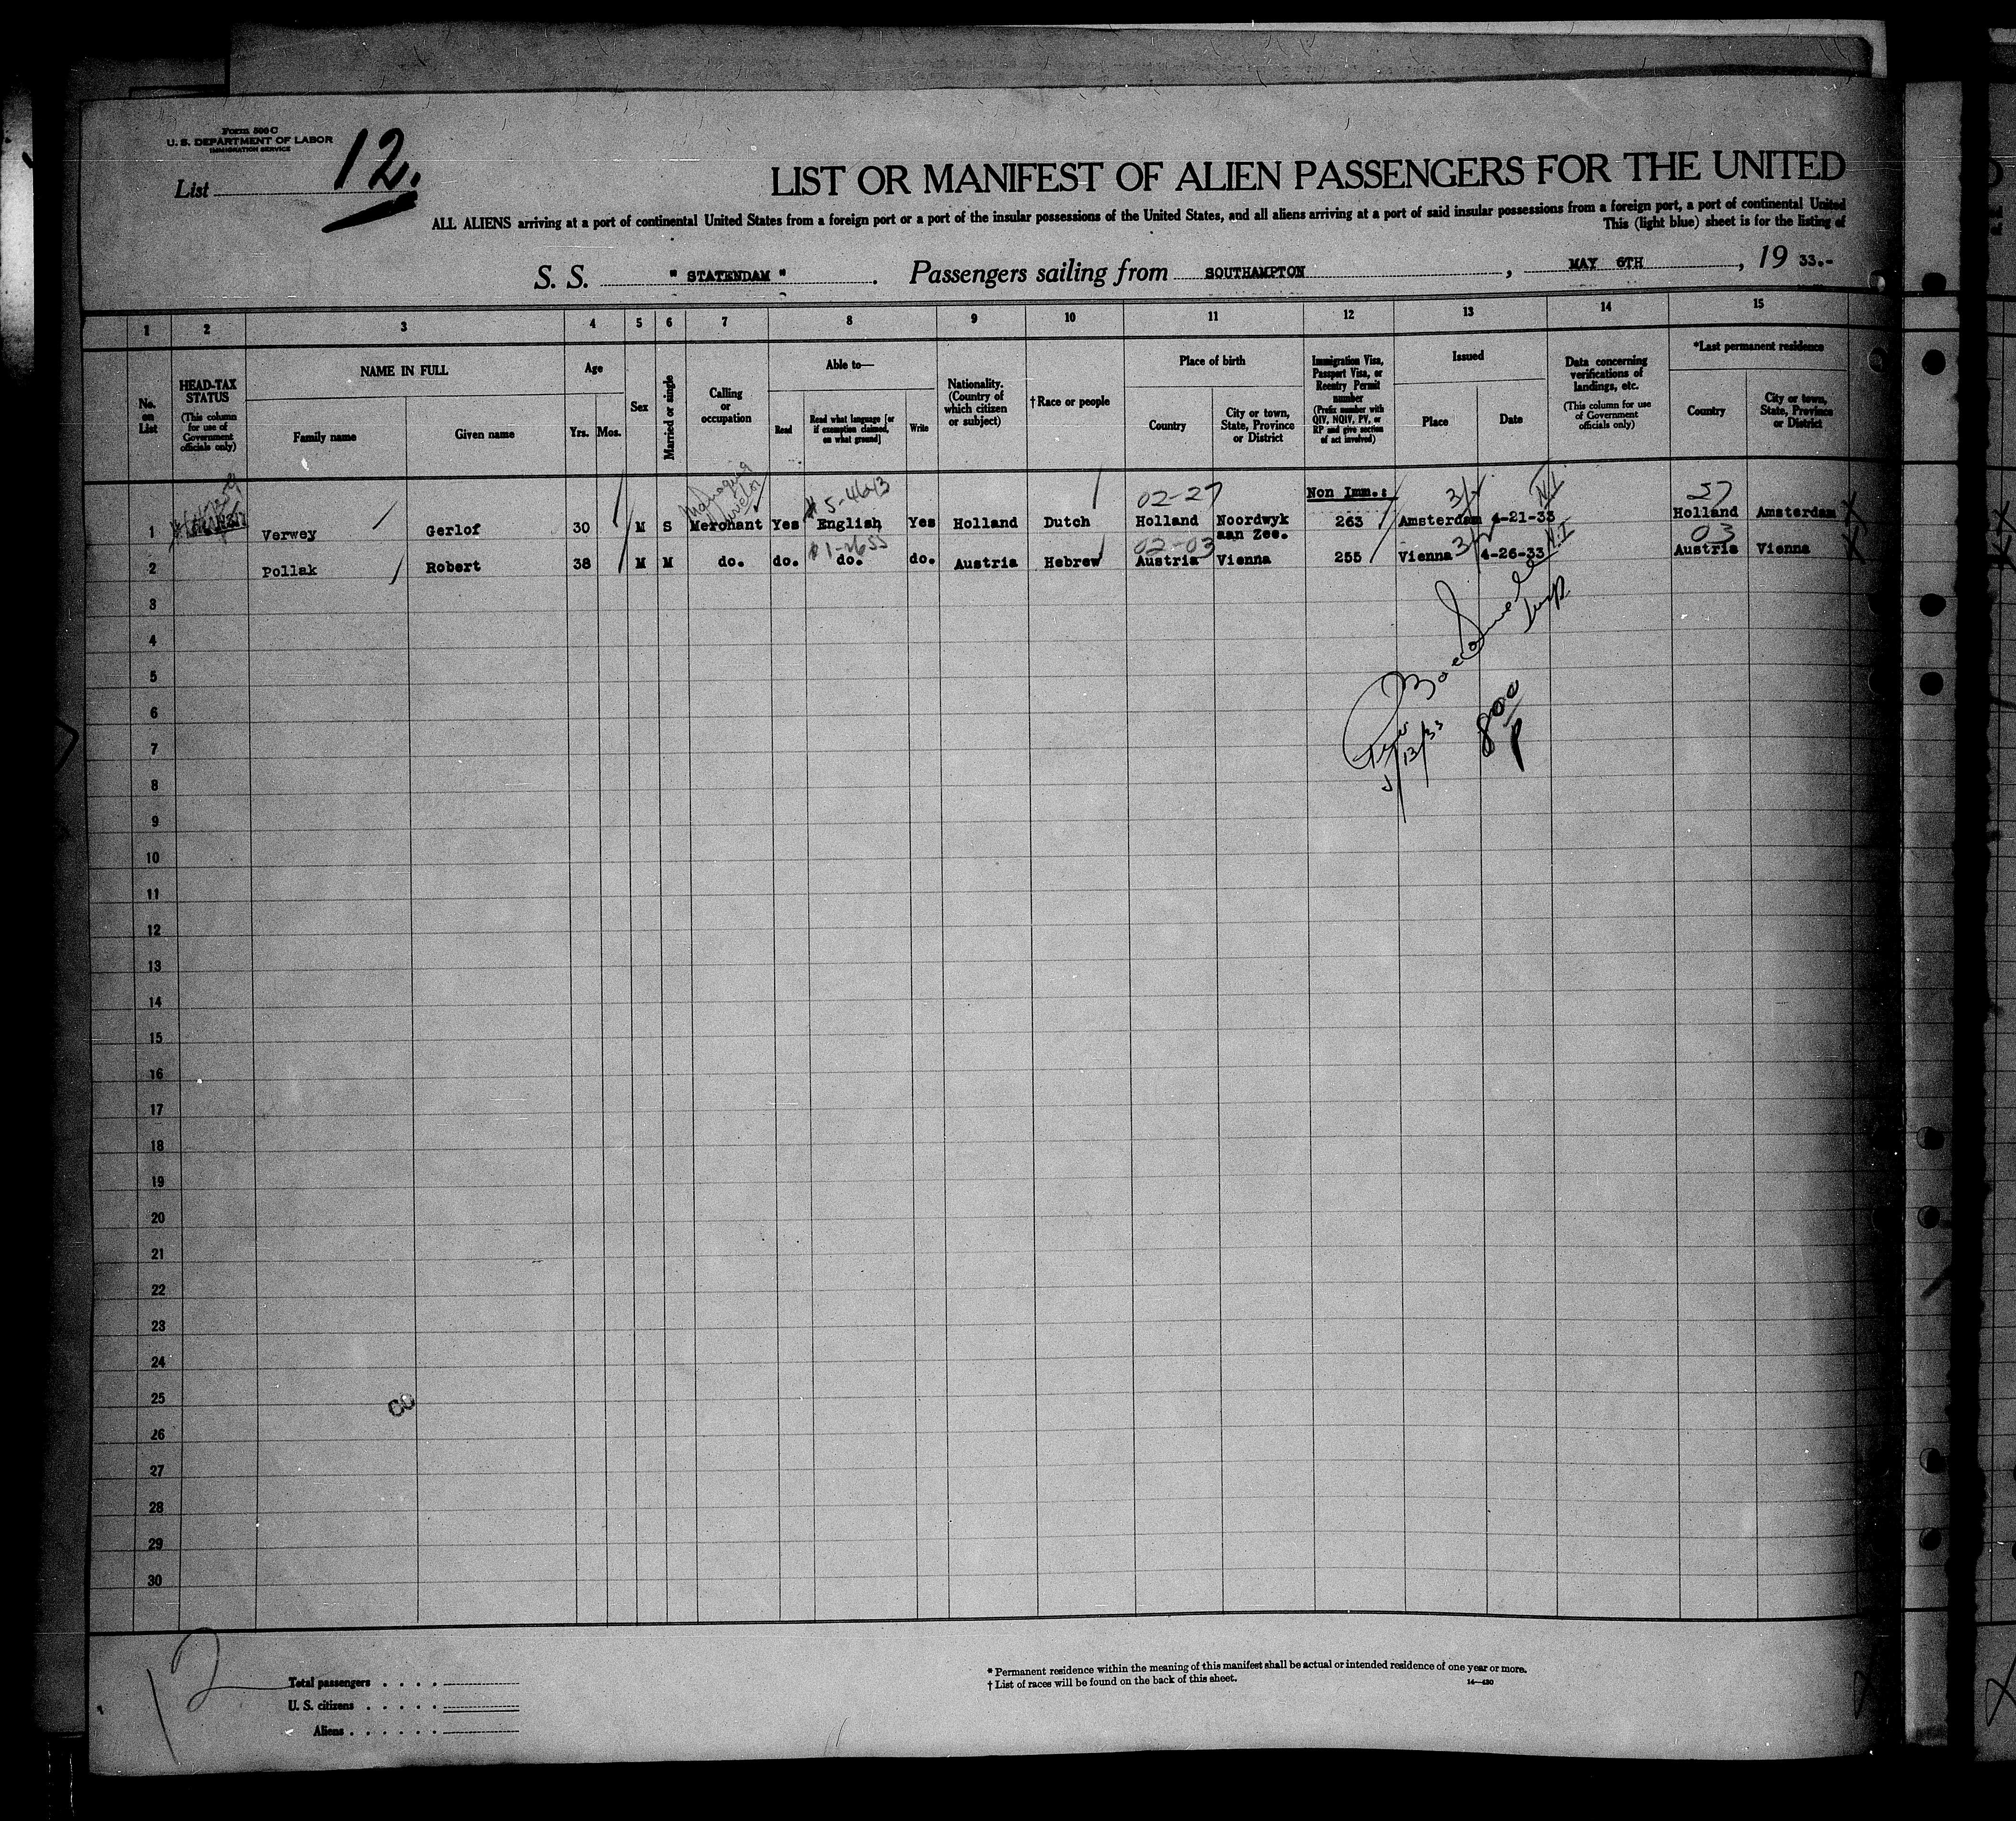 Form 500 C
U. S. DEPARTMENT OF LABOR
IMMIGRATION SERVICE
List 12.
LIST OR MANIFEST OF ALIEN PASSENGERS FOR THE UNITED
ALL ALIENS arriving at a port of continental United States from a foreign port or a port of the insular possessions of the United States, and all aliens arriving at a port of said insular possessions from a foreign port, a port of continental United
This (light blue) sheet is for the listing of
S. S. " STATENDAM " . Passengers sailing from SOUTHAMPTON , MAY 6TH , 19 33.-
1 2 3 4 5 6 7 8 9 10 11 12 13 14 15
No. on List
HEAD-TAX STATUS
(This column for use of Government officials only)
NAME IN FULL
Family name
Given name
Age
Yrs. Mos.
Sex
Married or single
Calling or occupation
Able to—
Read
Read what language [or if exemption claimed, on what ground]
Write
Nationality. (Country of which citizen or subject)
† Race or people
Place of birth
Country
City or town, State, Province or District
Immigration Visa, Passport Visa, or Reentry Permit number
(Prefix number with QIV, NQIV, PV, or RP and give section of act involved)
Issued
Place
Date
Data concerning verifications of landings, etc.
(This column for use of Government officials only)
*Last permanent residence
Country
City or town, State, Province or District
Managing 5-4643 02-27 Non Imm.: 3/ N.I. 27
1 Verwey Gerlof 30 M S Merchant Yes English Yes Holland Dutch Holland Noordwyk aan Zee. 263 Amsterdam 4-21-33 Holland Amsterdam X
1-2655 02-03 3/ N.I. 03
2 Pollak Robert 38 M M do. do. do. do. Austria Hebrew Austria Vienna 255 Vienna 4-26-33 Austria Vienna X
3
Insp
4
5
6
800
P
7
5/13/33
8
9
10
11
12
13
14
15
16
17
18
19
20
21
22
23
24
25
26
27
28
29
30
12
Total passengers . . . .
U. S. citizens . . . . .
Aliens . . . . . .
* Permanent residence within the meaning of this manifest shall be actual or intended residence of one year or more.
† List of races will be found on the back of this sheet.
14—430